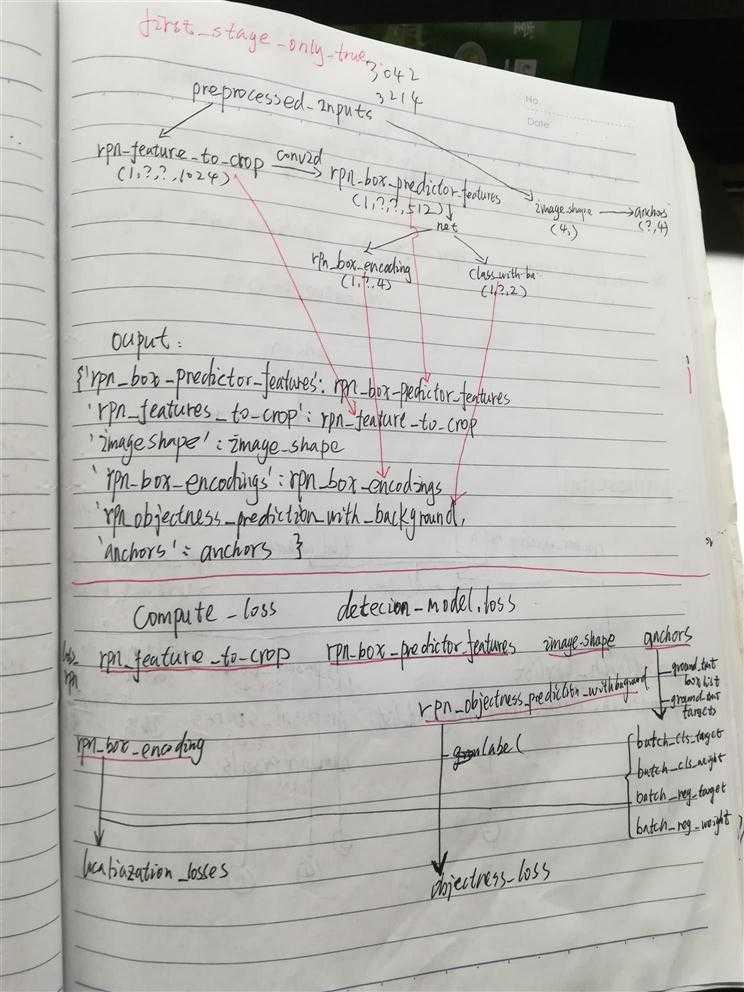 first_stage_only_true
3042
3214
No.
Date
preprocessed_inputs
rpn_feature_to_crop conv2d rpn_box_predictor_features
(1,?,?,1024) (1,?,?,512)
image_shape anchors
(4,) (?,4)
net
rpn_box_encoding class_with_ba
(1,?,4) (1,?,2)
ouput:
{'rpn_box_predictor_features': rpn_box_pedictor_features
'rpn_features_to_crop': rpn_feature_to_crop
'imageshape': image_shape
'rpn_box_encodings': rpn_box_encodings
'rpn_objectness_prediction_with_background,
'anchors': anchors }
compute_loss detecion_model.loss
loss_rpn rpn_feature_to_crop rpn_box_predictor_features image_shape anchors
box list
targets
rpn_objectness_prediction_with
rpn_box_encoding label
batch_cls_target
batch_cls_weight
batch_reg_target
batch_reg_weight
localiazation_losses objectness_loss